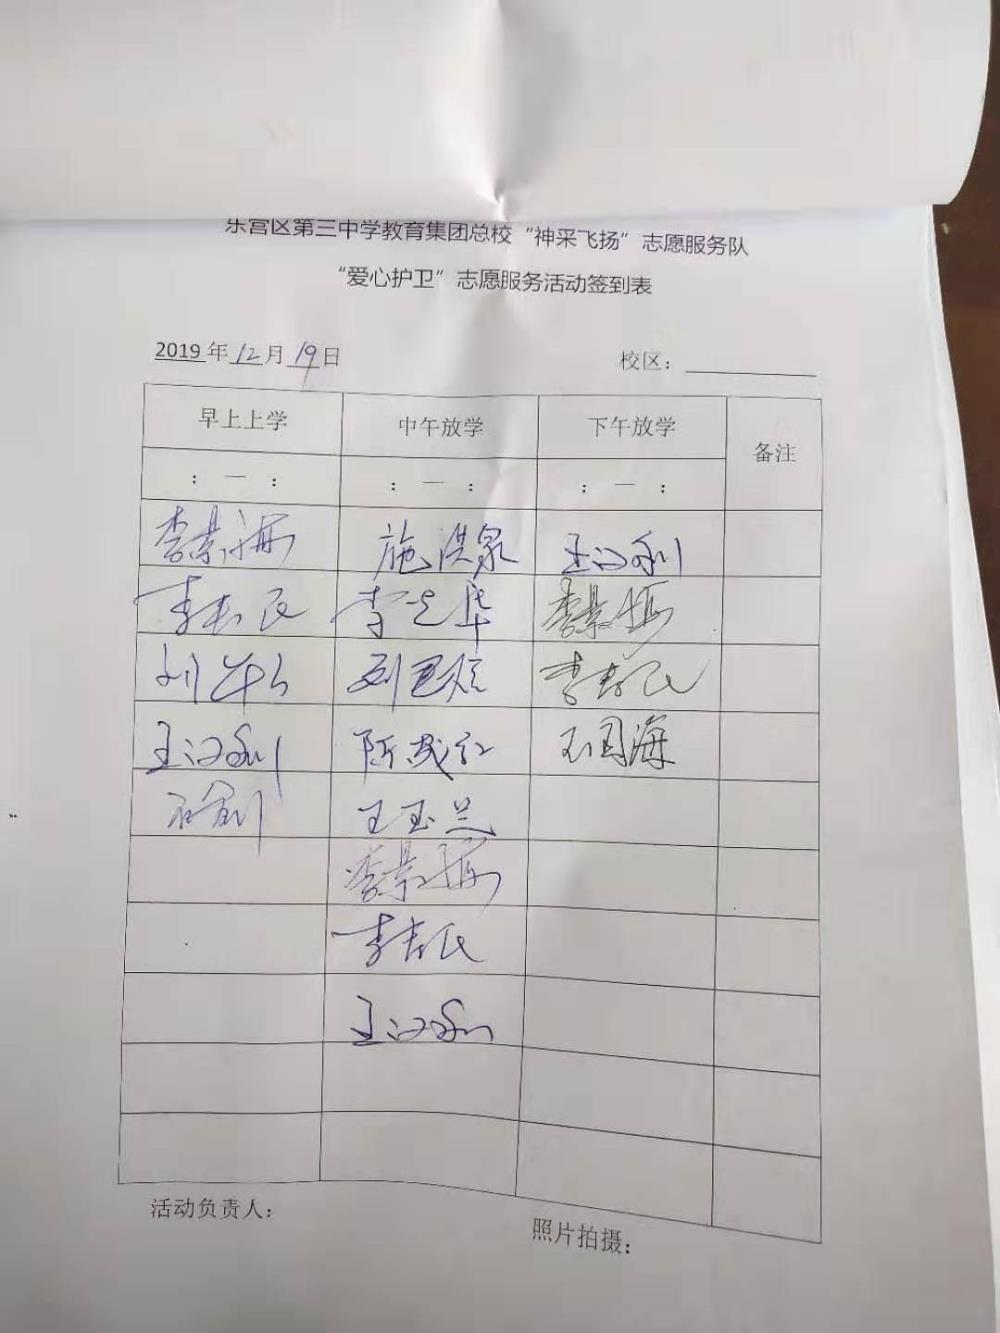 东营区第三中学教育集团总校“神采飞扬”志愿服务队
“爱心护卫”志愿服务活动签到表
2019年12月19日 校区：
早上上学 中午放学 下午放学 备注
：— ： ：— ： ：— ：
李景梅 施洪泉 王汉利
李春民 李光华 李景梅
李春民
王汉利 陈成红 王国海
王玉兰
李景梅
李春民
王汉利
活动负责人：
照片拍摄：